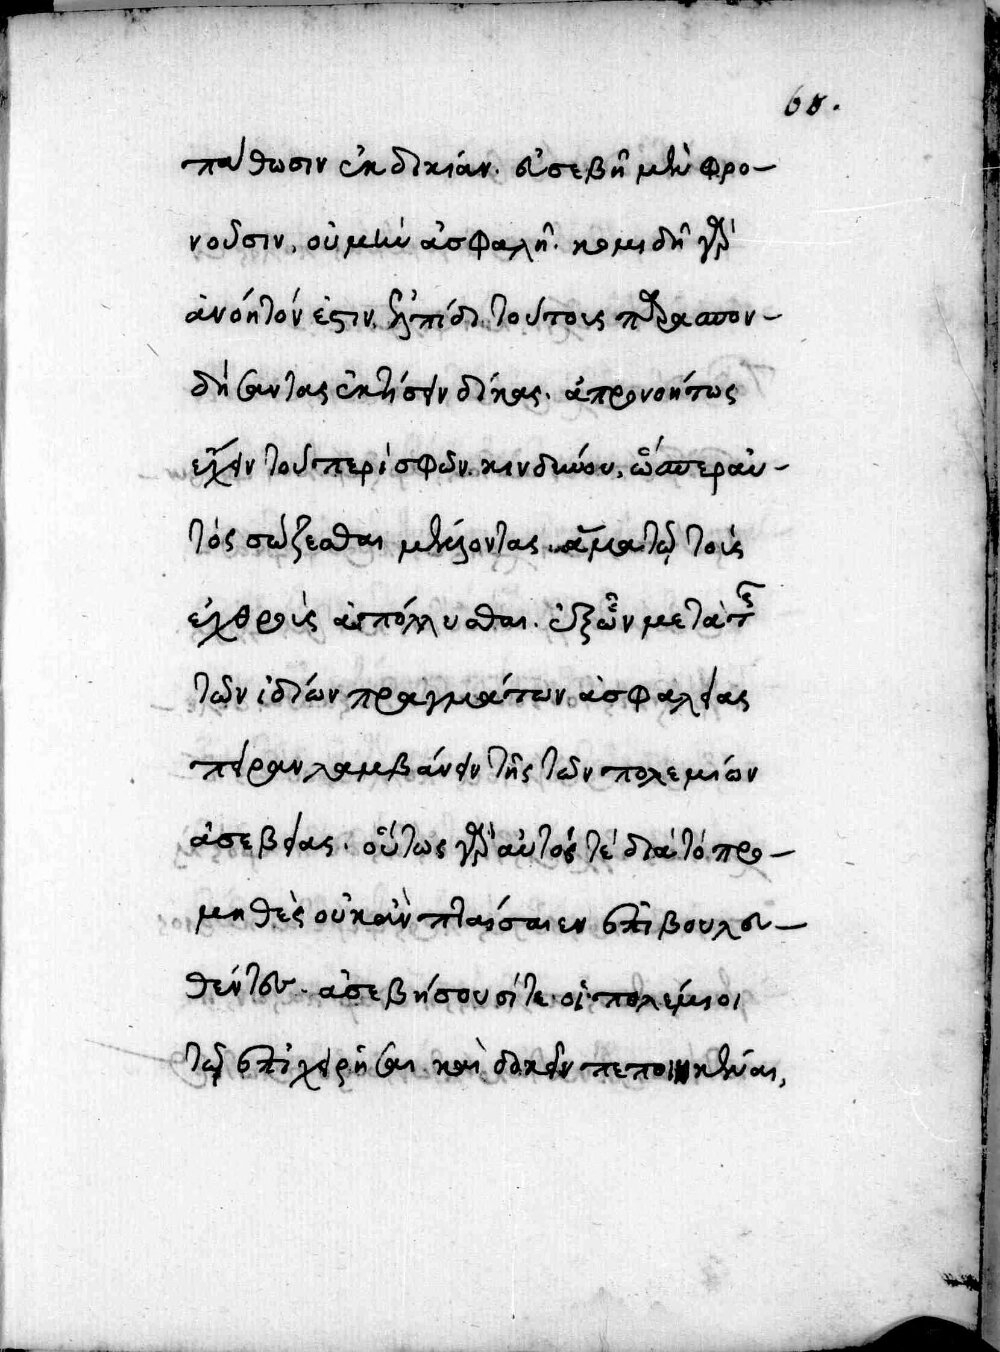 68.
πάθωσιν ἐκδικίαν. εὐσεβῆ μὲν φρο-
νοῦσιν, οὐ μὴν ἀσφαλῆ. κομιδῆ γὰρ
ἀνόητόν ἐστιν, ἐπ' ἐλπίδι τοῦ τοὺς παρασπον-
δήσαντας ἐκτίσειν δίκας. ἀπρονοήτως
ἔχειν τοῦ περὶ σφῶν κινδύνου, ὥσπερ αὐ-
τὸς σώζεσθαι μέλλοντας ἅμα τῷ τοὺς
ἐχθροὺς ἀπόλλυσθαι. ἐξὸν μετὰ τ
τῶν ἰδίων πραγμάτων ἀσφαλείας
πεῖραν λαμβάνειν τῆς τῶν πολεμίων
ἀσεβείας. οὕτως γὰρ αὐτός τε διὰ τὸ προ-
μηθὲς οὐκ ἂν πταίσαιεν ἐπιβουλευ-
θέντες. ἀσεβήσουσί τε οἱ πολέμιοι
τῷ ἐπιχειρῆσαι καὶ δοκεῖν πεποιηκέναι,